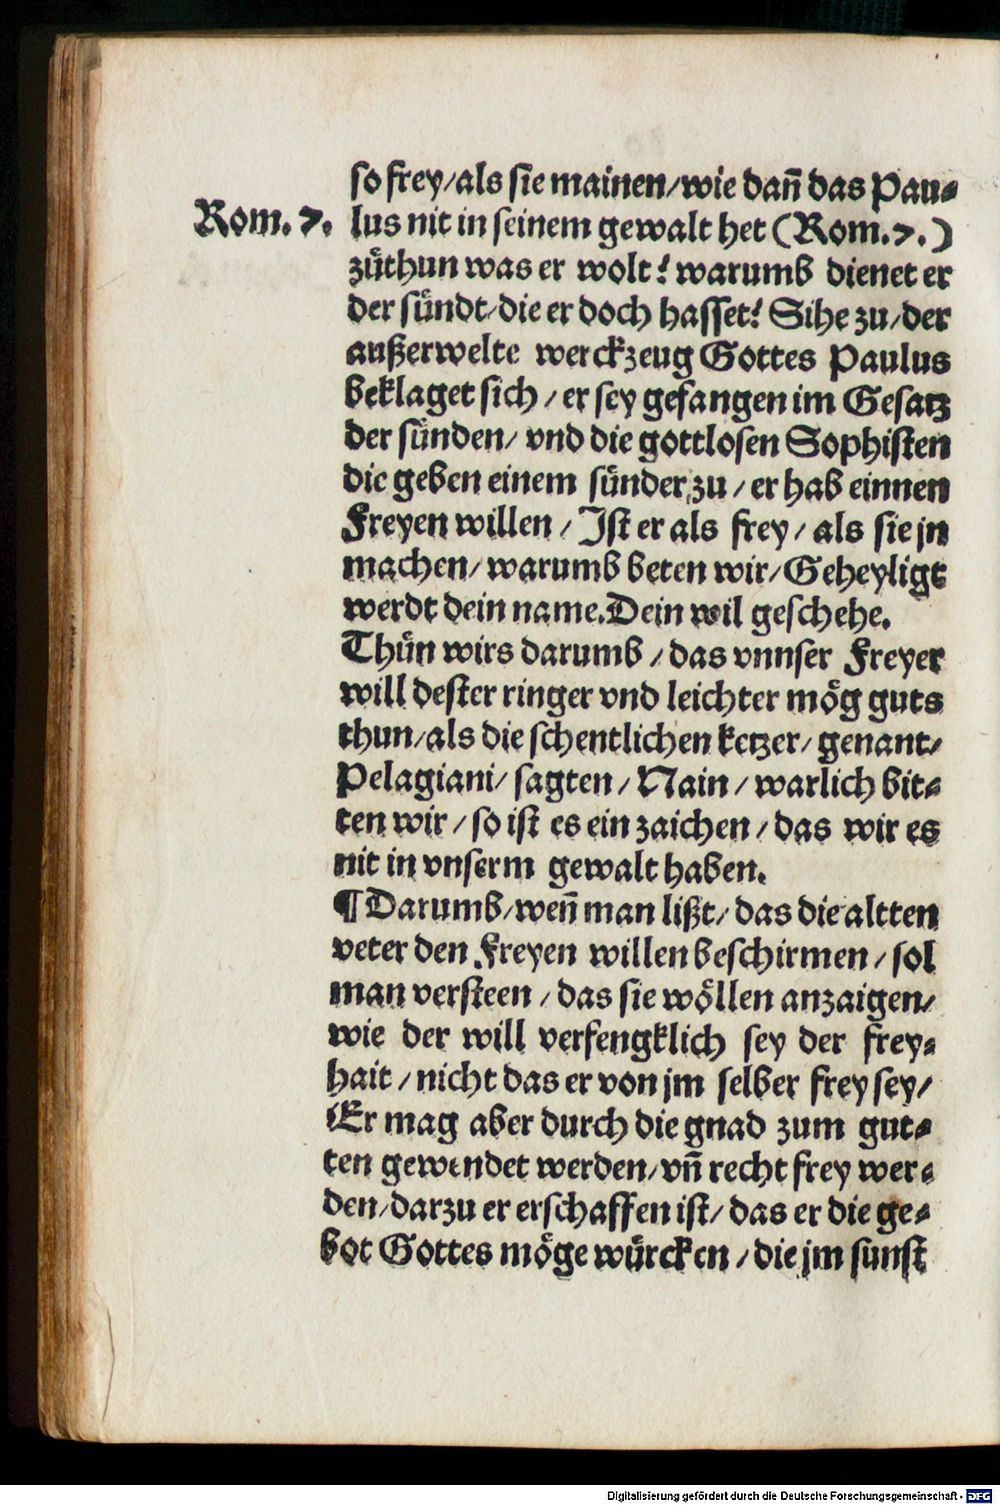 so frey/als sie mainen/wie dañ das Pau⸗
Rom. 7. lus nit in seinem gewalt het (Rom.7.)
zůthun was er wolt? warumb dienet er
der sündt/die er doch hasset? Sihe zu/der
außerwelte werckzeug Gottes Paulus
beklaget sich / er sey gefangen im Gesatz
der sünden/ vnd die gottlosen Sophisten
die geben einem sünder zu / er hab einnen
Freyen willen / Ist er als frey/ als sie jn
machen/ warumb beten wir/ Geheyligt
werdt dein name. Dein wil geschehe.
Thůn wirs darumb / das vnnser Freyer
will dester ringer vnd leichter mög guts
thun/als die schentlichen ketzer/ genant/
Pelagiani/ sagten / Nain / warlich bit⸗
ten wir / so ist es ein zaichen / das wir es
nit in vnserm gewalt haben.
¶ Darumb/weñ man lißt/ das die altten
veter den Freyen willen beschirmen / sol
man versteen / das sie wöllen anzaigen/
wie der will verfengklich sey der frey⸗
hait / nicht das er von jm selber frey sey/
Er mag aber durch die gnad zum gut⸗
ten gewendet werden/ vñ recht frey wer⸗
den/darzu er erschaffen ist/ das er die ge⸗
bot Gottes möge würcken / die jm sunst
Digitalisierung gefördert durch die Deutsche Forschungsgemeinschaft - DFG